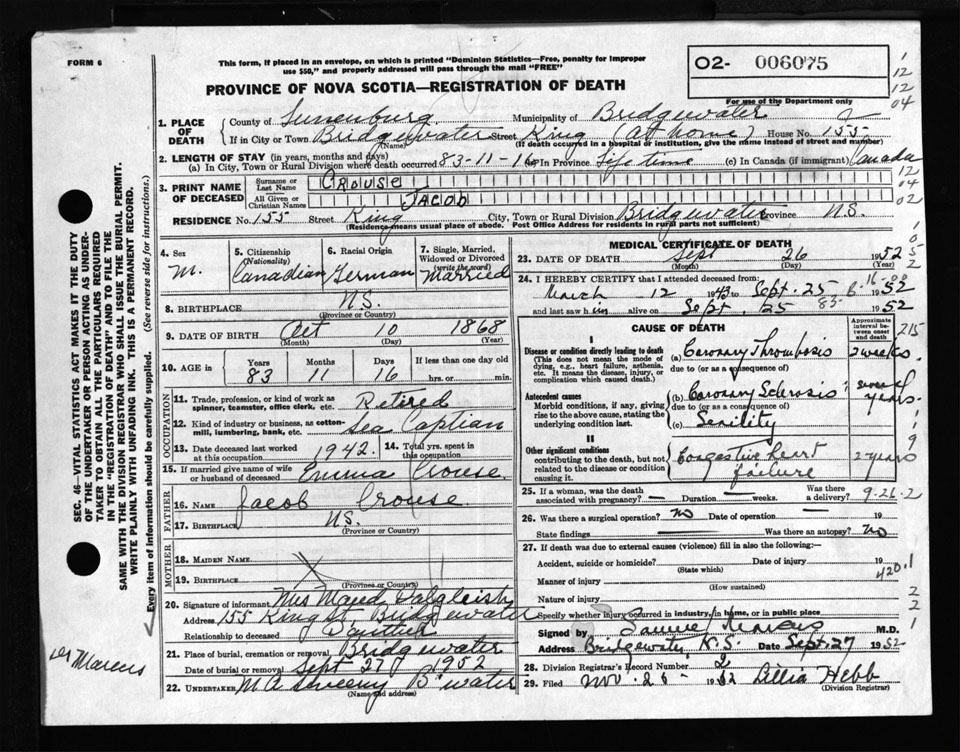 FORM 6
This form, if placed in an envelope, on which is printed "Dominion Statistics—Free, penalty for improper
use $50," and properly addressed will pass through the mail "FREE"
O2- 006075
PROVINCE OF NOVA SCOTIA—REGISTRATION OF DEATH
For use of the Department only
1. PLACE OF DEATH
County of Lunenburg Municipality of Bridgewater
If in City or Town Bridgewater Street King (at home) House No. 155
(Name) (If death occurred in a hospital or institution, give the name instead of street and number)
2. LENGTH OF STAY (in years, months and days)
(a) In City, Town or Rural Division where death occurred 83-11-16 (b) in Province Life time (c) In Canada (if immigrant) Canada
3. PRINT NAME OF DECEASED
Surname or Last Name CROUSE
All Given or Christian Names JACOB
RESIDENCE No. 155 Street King City, Town or Rural Division Bridgewater Province N.S.
(Residence means usual place of abode. Post Office Address for residents in rural parts not sufficient)
4. Sex M.
5. Citizenship (Nationality) Canadian
6. Racial Origin German
7. Single, Married, Widowed or Divorced (write the word) Married
8. BIRTHPLACE N.S.
(Province or Country)
9. DATE OF BIRTH Oct 10 1868
(Month) (Day) (Year)
10. AGE in Years 83 Months 11 Days 16 If less than one day old hrs. or min.
OCCUPATION
11. Trade, profession, or kind of work as spinner, teamster, office clerk, etc. Retired
12. Kind of industry or business, as cotton-mill, lumbering, bank, etc. Sea Captian
13. Date deceased last worked at this occupation 1942.
14. Total yrs. spent in this occupation
15. If married give name of wife or husband of deceased Emma Crouse.
FATHER
16. NAME Jacob Crouse
17. BIRTHPLACE N.S.
(Province or Country)
MOTHER
18. MAIDEN NAME
19. BIRTHPLACE
(Province or Country)
20. Signature of informant Mrs Maud Dalgleish
Address 155 King St. Bridgewater
Relationship to deceased Daughter
21. Place of burial, cremation or removal Bridgewater
Date of burial or removal Sept 27 1952
22. UNDERTAKER M A Sweeny B'water
(Name and address)
MEDICAL CERTIFICATE OF DEATH
23. DATE OF DEATH Sept 26 1952
(Month) (Day) (Year)
24. I HEREBY CERTIFY that I attended deceased from:
March 12 1943 to Sept. 25 1952
and last saw him alive on Sept. 25 1952
CAUSE OF DEATH
Approximate interval between onset and death
I
Disease or condition directly leading to death
(This does not mean the mode of dying, e.g., heart failure, asthenia, etc. It means the disease, injury, or complication which caused death.)
(a) Coronary Thrombosis 2 weeks.
due to (or as a consequence of)
Antecedent causes
Morbid conditions, if any, giving rise to the above cause, stating the underlying condition last.
(b) Coronary Sclerosis several years.
due to (or as a consequence of)
(c) Senility
II
Other significant conditions
contributing to the death, but not related to the disease or condition causing it.
Congestive heart failure 2 years
25. If a woman, was the death associated with pregnancy? — Duration — weeks. Was there a delivery?
9-26-2
26. Was there a surgical operation? no Date of operation — 19
State findings Was there an autopsy? no
27. If death was due to external causes (violence) fill in also the following:—
Accident, suicide or homicide? Date of injury 19
(State which)
420.1
Manner of injury
(How sustained)
Nature of injury
Specify whether injury occurred in industry, in home, or in public place
Signed by Samuel Marcus M.D.
Address Bridgewater, N.S. Date Sept. 27 1952
28. Division Registrar's Record Number 2
29. Filed Nov. 26 - 1952 Lillia Hebb
(Division Registrar)
SEC. 46—VITAL STATISTICS ACT MAKES IT THE DUTY
OF THE UNDERTAKER OR PERSON ACTING AS UNDER-
TAKER TO OBTAIN ALL THE PARTICULARS REQUIRED
IN THE "REGISTRATION OF DEATH" AND TO FILE THE
SAME WITH THE DIVISION REGISTRAR WHO SHALL ISSUE THE BURIAL PERMIT.
WRITE PLAINLY WITH UNFADING INK. THIS IS A PERMANENT RECORD.
Every item of information should be carefully supplied. (See reverse side for instructions.)
Marcus
12
12
04
12
04
02
215